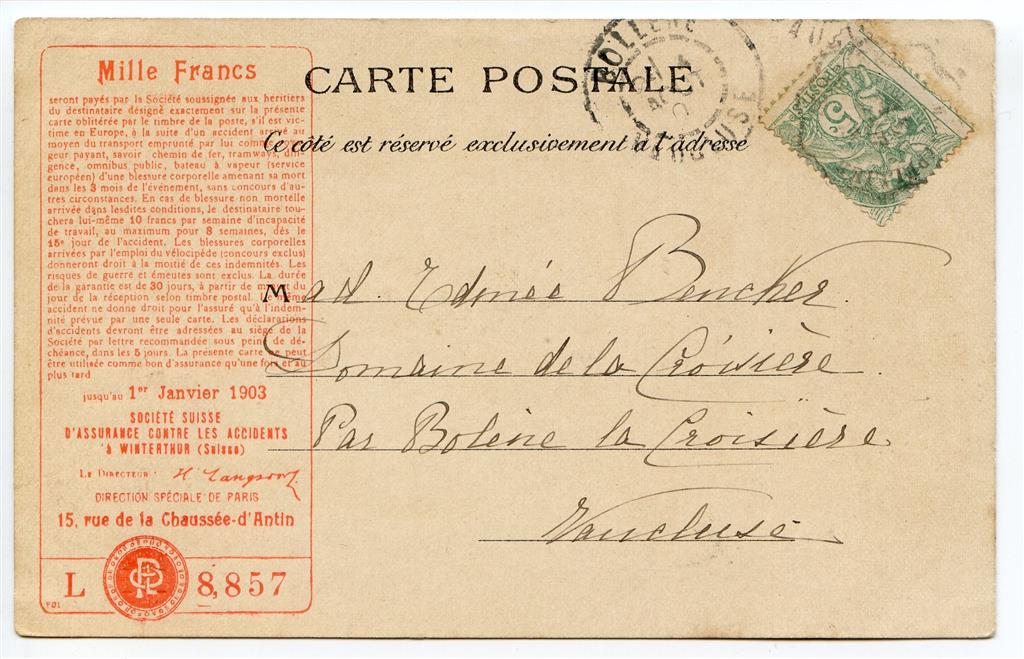 Mille Francs
seront payés par la Société soussignée aux heritiers
du destinataire désigné exactement sur la présente
carte oblitérée par le timbre de la poste, s'il est vic-
time en Europe, à la suite d'un accident arrivé au
moyen du transport emprunté par lui comme
geur payant, savoir : chemin de fer, tramways, dili-
gence, omnibus public, bateau à vapeur (service
européen) d'une blessure corporelle amenant sa mort
dans les 3 mois de l'événement, sans concours d'au-
tres circonstances. En cas de blessure non mortelle
arrivée dans lesdites conditions, le destinataire tou-
chera lui-même 10 francs par semaine d'incapacité
de travail, au maximum pour 8 semaines, dès le
15e jour de l'accident. Les blessures corporelles
arrivées par l'emploi du vélocipède (concours exclus)
donneront droit à la moitié de ces indemnités. Les
risques de guerre et émeutes sont exclus. La durée
de la garantie est de 30 jours, à partir de du
jour de la réception selon timbre postal. Le même
accident ne donne droit pour l'assuré qu'à l'indem-
nité prévue par une seule carte. Les déclarations
d'accidents devront être adressées au siège de la
Société par lettre recommandée sous peine de dé-
chéance, dans les 5 jours. La présente carte ne peut
être utilisée comme bon d'assurance qu'une fois et au
plus tard
jusqu'au 1er Janvier 1903
SOCIÉTÉ SUISSE
D'ASSURANCE CONTRE LES ACCIDENTS
à WINTERTHUR (Suisse)
LE DIRECTEUR :
DIRECTION SPÉCIALE DE PARIS
15, rue de la Chaussée-d'Antin
L PR 8,857
YO1
CARTE POSTALE
Ce côté est réservé exclusivement à l'adresse
BOLLENE
VAUCLUSE
5c
Mad. Edmée Bencher
Domaine de la Croisière
Par Bolène la Croisière
Vaucluse